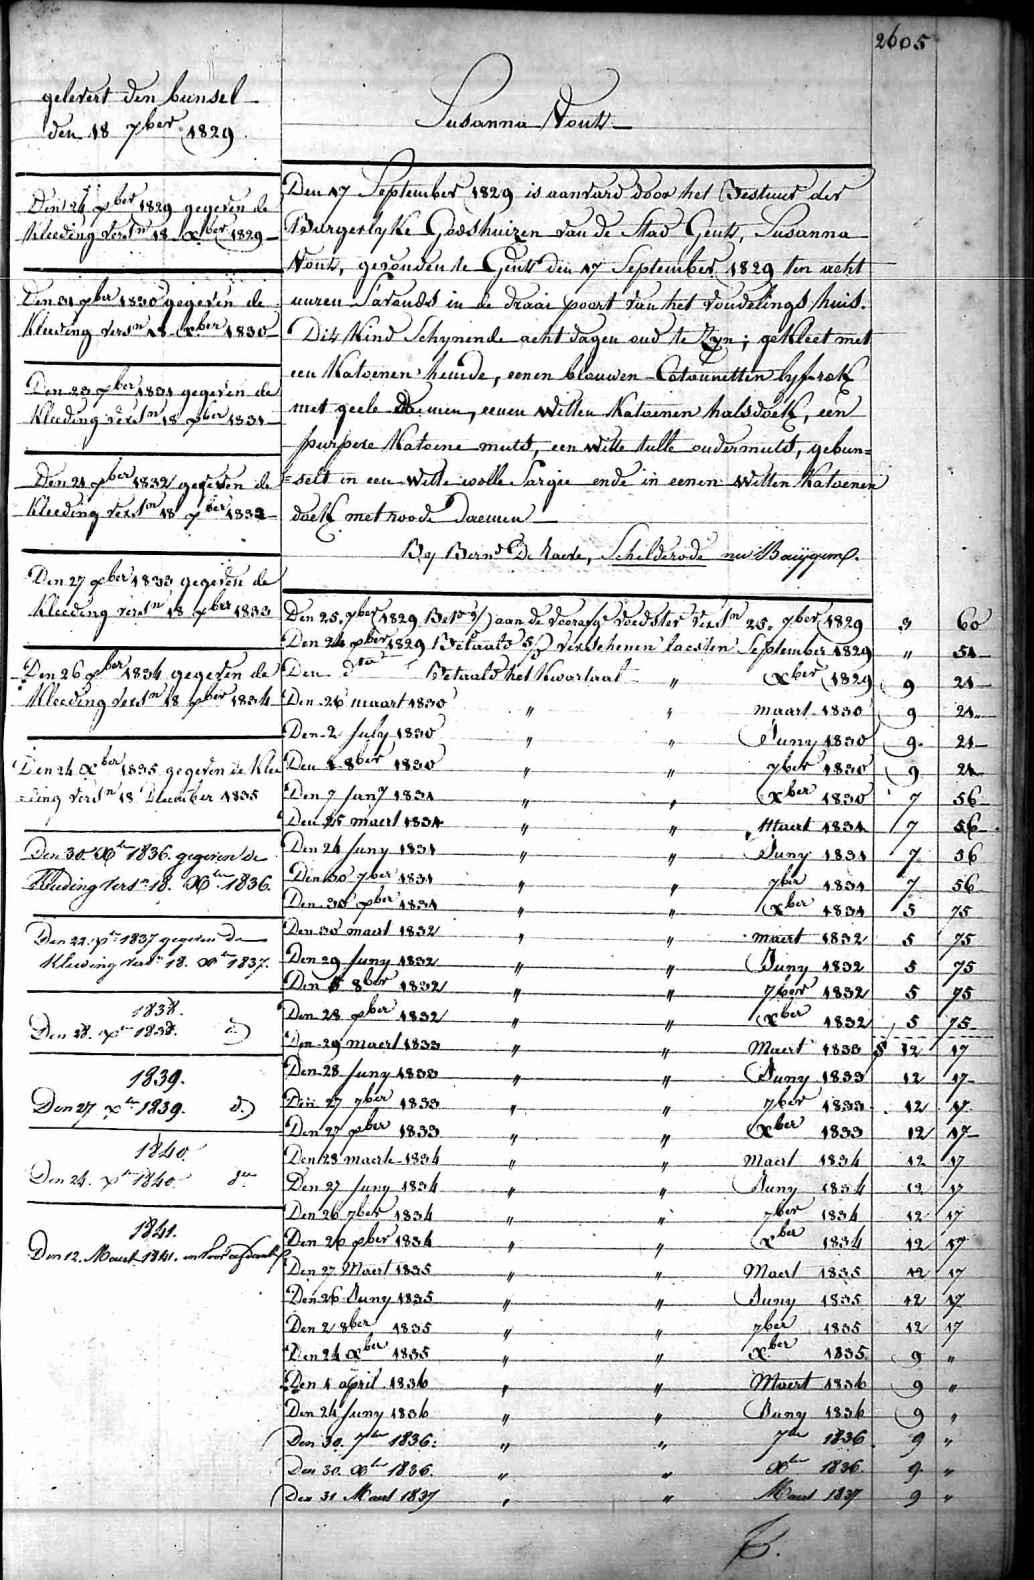 2605
gelevert den bunsel
den 18 7ber 1829
Susanna Nouts
Den 24 xber 1829 gegeven de
Kleeding versn 18 xber 1829
Den 31 xber 1830 gegeven de
Kleeding versn 18 xber 1830
Den 23 xber 1831 gegeven de
Kleeding versn 18 xber 1831
Den 21 xber 1832 gegeven de
Kleeding versn 18 xber 1832
Den 27 xber 1833 gegeven de
Kleeding versn 18 xber 1833
Den 26 xber 1834 gegeven de
Kleeding versn 18 xber 1834
Den 24 xber 1835 gegeven de Klee
=ding versn 18 December 1835
Den 30 xber 1836. gegeven de
Kleeding versn 18. xber 1836.
Den 22. xber 1837 gegeven de
Kleeding versn 18. xber 1837.
1838.
Den 28. xber 1838. d.)
1839.
Den 27 xber 1839. d.)
1840.
Den 24. xber 1840. do
1841.
Den 12. Maert 1841.
Den 17 September 1829 is aanvard door het Bestuur der
Burgerlyke Godshuizen van de Stad Gent, Susanna
Nouts, gevonden te Gent den 17 September 1829 ten acht
uuren S'avonds in de draai poort van het vondelings huis.
Dit Kind Schynende acht dagen oud te Zyn; gekleet met
een Katoenen hemde, eenen blauwen Cotonnetten lyfrok
met geele bloemen, eenen Witten Katoenen halsdoek, een
purpere Katoene muts, een Witte tulle ondermuts, gebun=
=selt in een Witte wolle Sargie ende in eenen Witten Katoenen
doek met roode bloemen
By Bernd De Raeve, Schelderode nu Baygem.
Den 25. 7ber 1829 aan de voorige voedster versn 25. 7ber 1829 3 60
Den 24 xber 1829 Betaald verschenen laesten September 1829 " 51
Den dto Betaald het Kwartaal " xber 1829 9 21
Den 26 maart 1830 " " maart 1830 9 21
Den 2 July 1830 " " Juny 1830 9 21
Den 8ber 1830 " " 7ber 1830 9 21
Den 7 Jany 1831 " " xber 1830 7 56
Den 25 maert 1831 " " Maert 1831 7 56
Den 24 Juny 1831 " " Juny 1831 7 56
Den 30 7ber 1831 " " 7ber 1831 7 56
Den 30 xber 1831 " " xber 1831 5 75
Den 30 maert 1832 " " maert 1832 5 75
Den 29 Juny 1832 " " Juny 1832 5 75
Den 5 8ber 1832 " " 7ber 1832 5 75
Den 28 xber 1832 " " xber 1832 5 75
Den 29 maert 1833 " " Maert 1833 12 17
Den 28 Juny 1833 " " Juny 1833 12 17
Den 27 7ber 1833 " " 7ber 1833 12 17
Den 27 xber 1833 " " xber 1833 12 17
Den 28 maert 1834 " " Maert 1834 12 17
Den 27 Juny 1834 " " Juny 1834 12 17
Den 26 7ber 1834 " " 7ber 1834 12 17
Den 26 xber 1834 " " xber 1834 12 17
Den 27 Maert 1835 " " Maert 1835 12 17
Den 26 Juny 1835 " " Juny 1835 12 17
Den 2 8ber 1835 " " 7ber 1835 12 17
Den 24 xber 1835 " " xber 1835 9 "
Den 1 april 1836 " " Maert 1836 9 "
Den 24 Juny 1836 " " Juny 1836 9 "
Den 30. 7ber 1836: " " 7ber 1836 9 "
Den 30. xber 1836. " " xber 1836. 9 "
Den 31 Maert 1837 " " Maert 1837 9 "